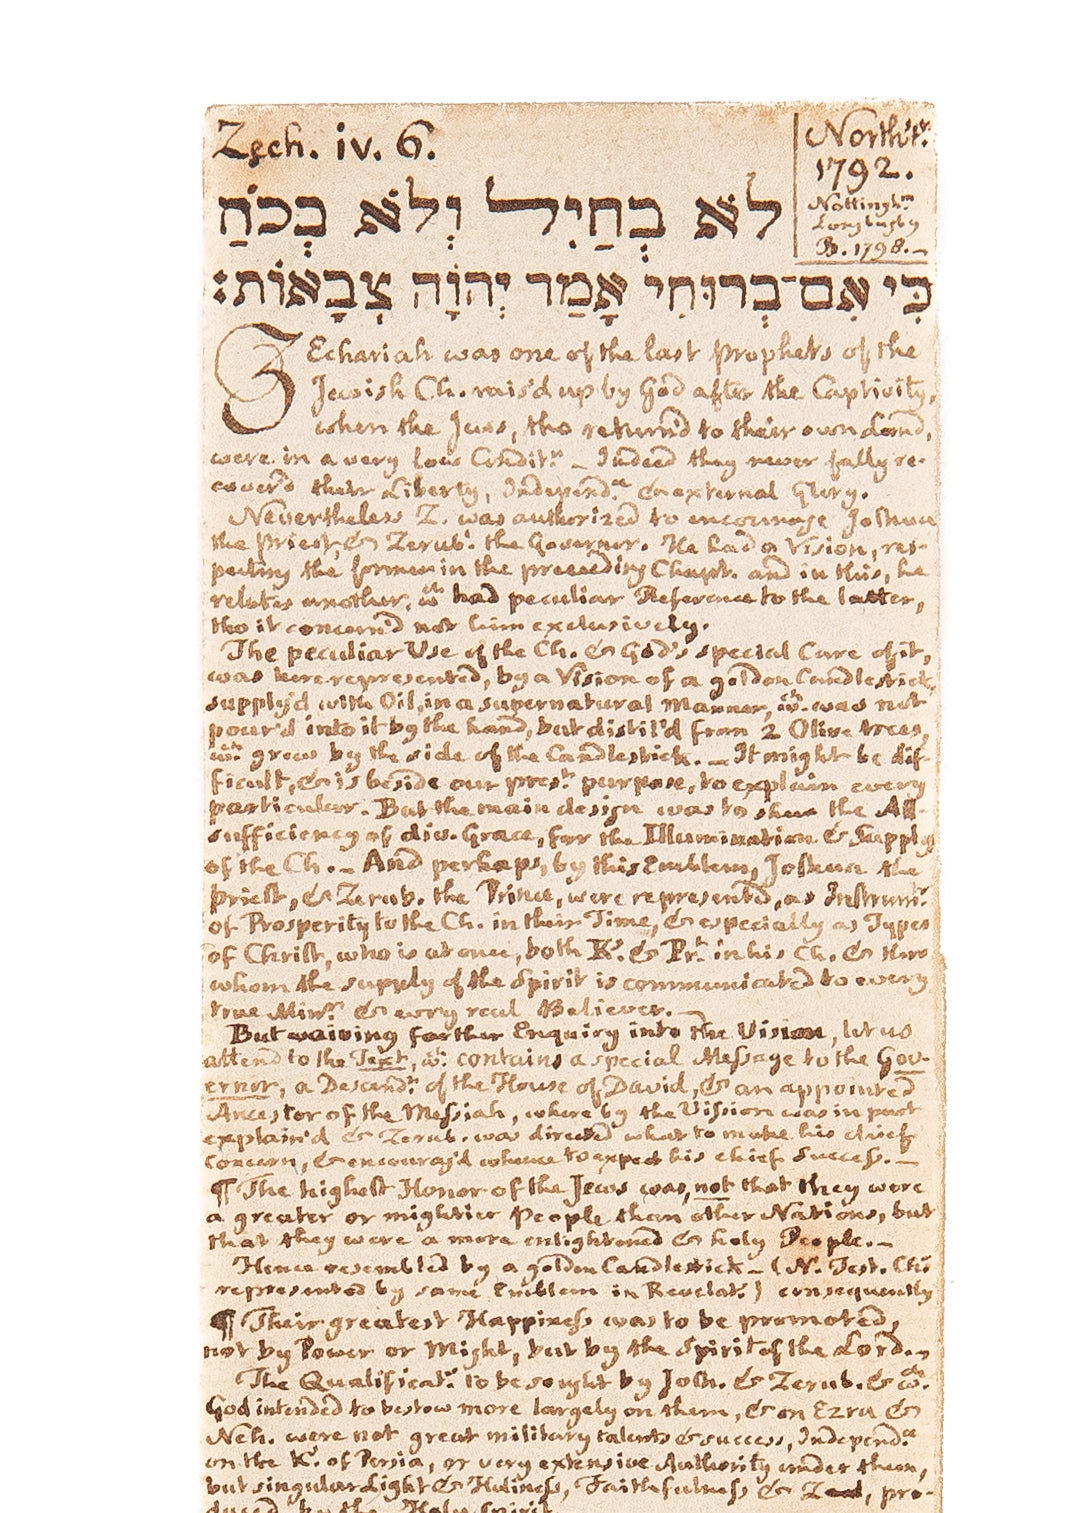 Zech. iv. 6.
North't.
1792.
Nottingh.m
Longbuyby
B. 1798.-
לֹא בְחַיִל וְלֹא בְכֹחַ
כִּי אִם־בְּרוּחִי אָמַר יְהוָֹה צְבָאוֹת׃
ZEchariah was one of the last Prophets of the
Jewish Ch. rais'd up by God after the Captivity,
when the Jews, tho return'd to their own Land,
were in a very low Condit.n _ Indeed they never fully re-
cover'd their Liberty, Independ.ce & external Glory.
Nevertheless Z. was authorized to encourage Joshua
the Priest, & Zerub. the Governor. He had a Vision, res-
pecting the former in the preceeding Chapt. and in this, he
relates another, wch had peculiar Reference to the latter,
tho it concern'd not him exclusively.
The peculiar Use of the Ch. & God's special Care of it,
was here represented, by a Vision of a golden Candlestick,
supply'd with Oil, in a supernatural Manner, wch was not
pour'd into it by the hand, but distil'd from 2 Olive trees,
wch grew by the side of the Candlestick. _ It might be dif-
ficult, & is beside our pres.t purpose, to explain every
particular. But the main design was to shew the All-
sufficiency of div. Grace, for the Illumination & Supply
of the Ch. _ And perhaps, by this Emblem, Joshua the
Priest, & Zerub. the Prince, were represented, as Instrum.ts
of Prosperity to the Ch. in their Time, & especially as Types
of Christ, who is at once, both K. & Pr.t in his Ch. & thro
whom the supply of the Spirit is communicated to every
true Min.r & every real Believer. _
But waiving farther Enquiry into the Vision, let us
attend to the Text, wch contains a special Message to the Gov-
ernor, a Descend.t of the House of David, & an appointed
Ancestor of the Messiah, where by the Vission was in part
explain'd & Zerub. was directed what to make his chief
Concern, & encourag'd whence to expect his chief Success. _
¶ The highest Honor of the Jews was, not that they were
a greater or mightier People than other Nations, but
that they were a more enlightened & holy People. _
Hence resembled by a golden Candlestick _ (N. Test. Chs
represented by same Emblem in Revelat.n) consequently
¶ Their greatest Happiness was to be promoted,
not by Power or Might, but by the Spirit of the Lord. _
The Qualificat.s to be sought by Josh. & Zerub. & wch
God intended to bestow more largely on them, & on Ezra &
Neh. were not great military talents & success, Independ.ce
on the K. of Persia, or very extensive Authority under them,
but singular Light & Holiness, Faithfulness & Zeal, pro-
duced by the Holy Spirit.